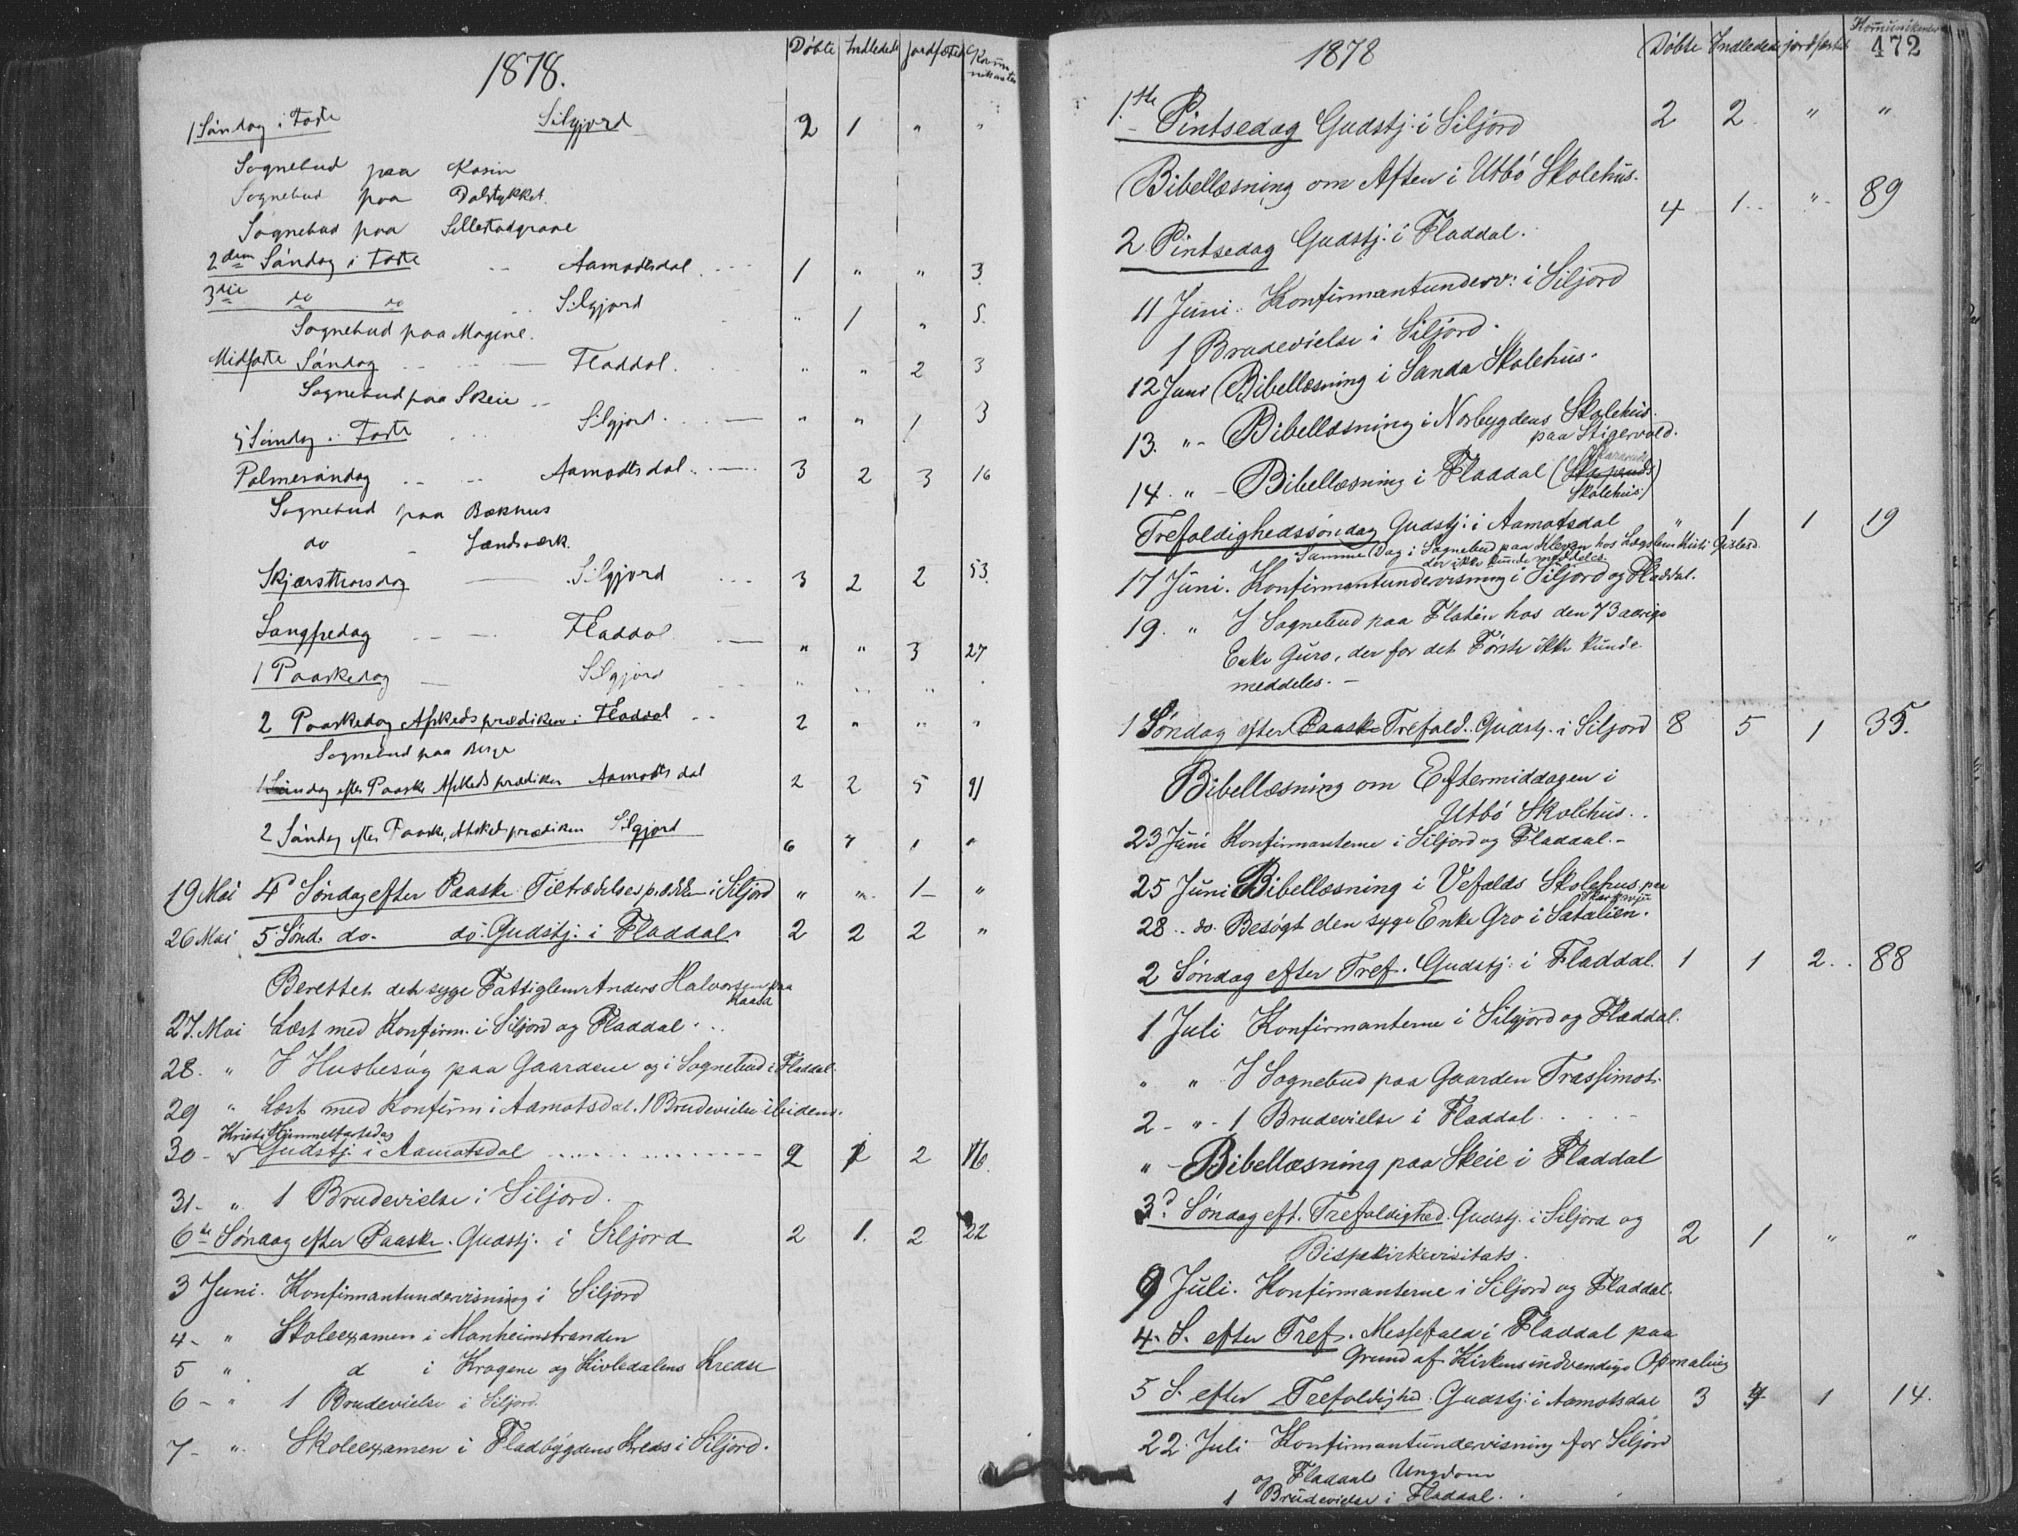 1878.
Døbte Indledede Jordfæstede Kommunikanter
1 Søndag i Faste Silgjord 2 1 " "
Sognebud paa Kasin
Sognebud paa Dalstykket.
Sognebud paa
2den Søndag i Faste -- Aamodtsdal 1 " " 3
3die do do Silgjord " 1 " 5.
Sognebud paa Mogene.
Midfaste Søndag Fladdal. " " 2 3
Sognebud paa Skeie --
5 Søndag i Faste Silgjord. " " 1 3
Palmesøndag -- -- Aamodtsdal. 3 2 3 16
Sognebud paa Bækhus
do - Landsværk.
Skjærsthorsdag Silgjord 3 2 2 53.
Langfredag Fladdal " " 3 27
1 Paaskedag Silgjord " " " "
2 Paaskedag Afskedsprædiken i Fladdal 2 " " "
Sognebud paa Berge
1 Søndag efter Paaske Afskedsprædiken Aamodtsdal 2 2 5 91
2 Søndag efter Paaske, Afskedsprædiken Silgjord 6 7 1 "
19 Mai 4d Søndag efter Paaske Tiltrædelsesprædken i Siljord " " 1 "
26 Mai 5 Sønd. do. do. Gudstj. i Fladdal. 2 2 2 "
Berettet det syge Fattiglem Anders Halvorsen paa
Haasa
27. Mai Læst med Konfirm. i Siljord og Fladdal.
28. " I Husbesøg paa Gaardene og i Sognebud i Fladdal.
29 " Læst med Konfirm i Aamotsdal. 1 Brudevielse ibidem.
Kristi Himmelfartsdag
30 - " Gudstj. i Aamotsdal 2 2 2 16.
31- " 1 Brudevielse i Siljord.
6te Søndag efter Paaske. Gudstj. i Siljord 2 1. 2 22
3 Juni. Konfirmantundervisning i Siljord
4- " Skoleexamen i Manheimstranden
5 " d i Kragene og Kivledalens Kredse
6- " 1 Brudevielse i Siljord.
7- " Skoleexamen i Fladbygdens Kreds i Siljord.
1878
Døbte Indledede jordfæstet Komunikanter
472
1ste Pintsedag Gudstj. i Siljord 2 2 " "
Bibellæsning om Aften i Utbö Skolehus.
2 Pintsedag Gudstj. i Fladdal. 4 1 " 89
11 Juni. Konfirmantunderv. i Siljord
1 Brudevielse i Siljord.
12 Juni Bibellæsning i Sanda Skolehus.
13. " - Bibellæsning i Norbygdens Skolehus.
paa Stigervold.
14. " - Bibellæsning i Fladdal
Skolehus)
Trefoldighedssøndag Gudstj. i Aamotsdal " 1 1 19
Samme Dag i Sognebud paa Kleven hos Lægslem Kisti Gislesd.
der ikke kunde meddeles.
17 Juni. Konfirmantundervisning i Siljord og Fladdal.
19. " I Sognebud paa Flatin hos den 73 aarige
Enke Guro, der for det Første ikke kunde
meddeles. -
1 Søndag efter Paaske Trefold. Gudstj. i Siljord 8 5 1 35.
Bibellæsning om Eftermiddagen i
Utbö Skolehus.
23 Juni Konfirmanterne i Siljord og Fladdal. -
25 Juni Bibellæsning i Vefalds Skolehus paa
28 .. do. Besøgt den syge Enke Gro i Satalien.
2 Søndag efter Tref. Gudstj. i Fladdal. 1 1 2 88
1 Juli Konfirmanterne i Silgjord og Fladdal.
" " I Sognebud paa Gaarden Trassimot.
2 - " - 1 Brudevielse i Fladdal
" - Bibellæsning paa Skeie i Fladdal
3d Søndag eft. Trefoldighed. Gudstj. i Siljord og 2 1 " "
Bispekirkevisitats.
9 Juli. Konfirmanterne i Siljord og Fladdal.
4. S. efter Tref. Messefald i Fladdal paa
Grund af Kirkens indvendige Opmaling
5 S. efter Trefoldighed. Gudstj. i Aamotsdal 3 1 14.
22. Juli Konfirmantundervisning for Siljord
og Fladdals Ungdom
1 Brudevielse i Fladdal.